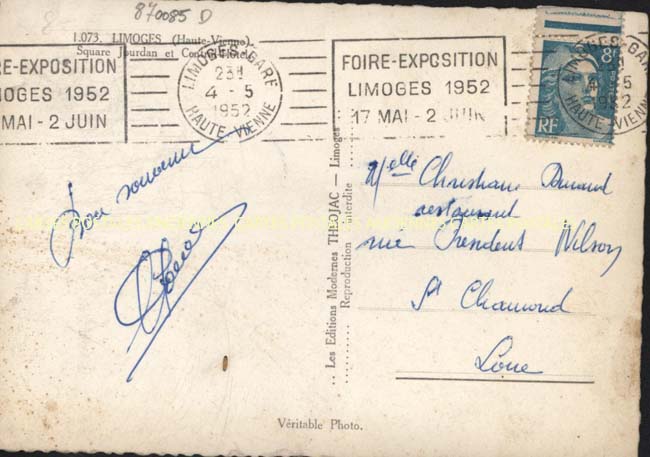 870085 D
1.073. LIMOGES (Haute-Vienne)
Square Jourdan et Central Hôtel
RE-EXPOSITION
MOGES 1952
MAI - 2 JUIN
LIMOGES-GARE
23H
4 - 5
1952
HAUTE-VIENNE
FOIRE-EXPOSITION
LIMOGES 1952
17 MAI - 2 JUIN
LIMOGES-GARE
4 - 5
1952
HAUTE-VIENNE
8F
RF
Bon souvenir
.. Les Editions Modernes THEOJAC — Limoges ..
Reproduction interdite
Melle Christiane Durand
restaurant
rue Président Wilson
St Chamond
Loire
Véritable Photo.